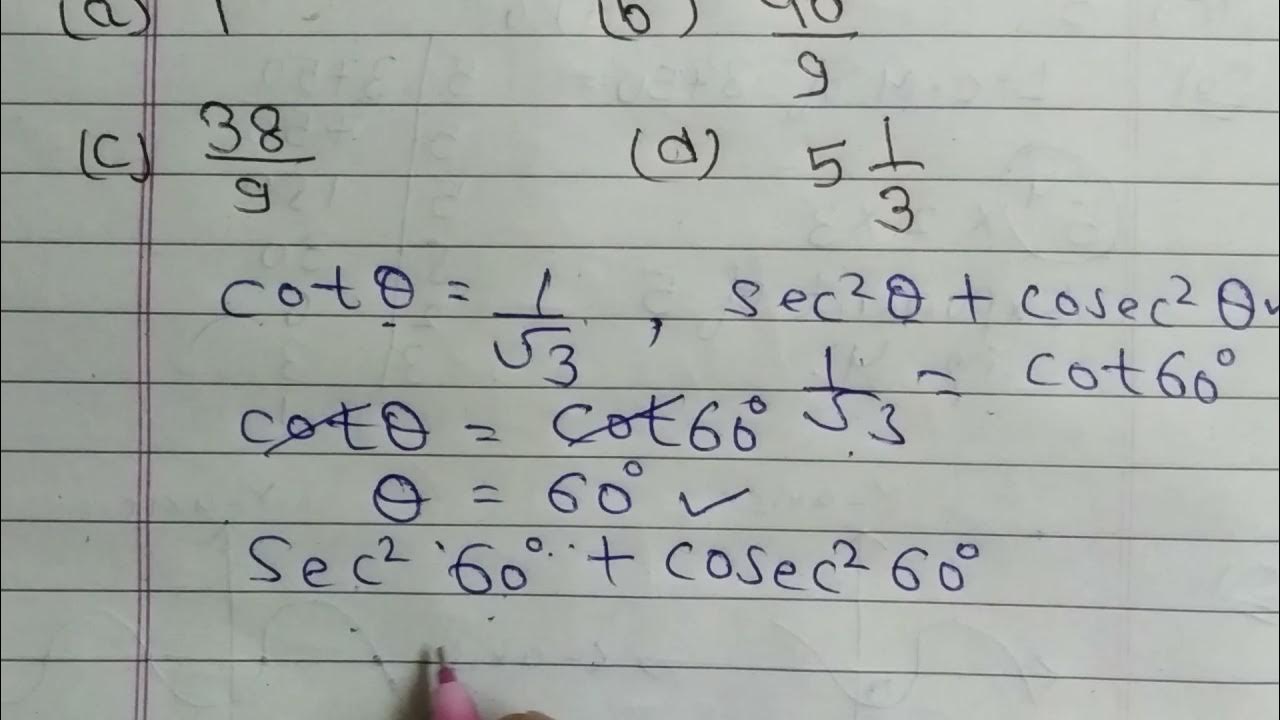 (a) 1 (b) 40/9
(c) 38/9 (d) 5 1/3
cot θ = 1/√3 , sec² θ + cosec² θ
1/√3 = cot 60°
cot θ = cot 60°
θ = 60° ✓
Sec² 60° + cosec² 60°